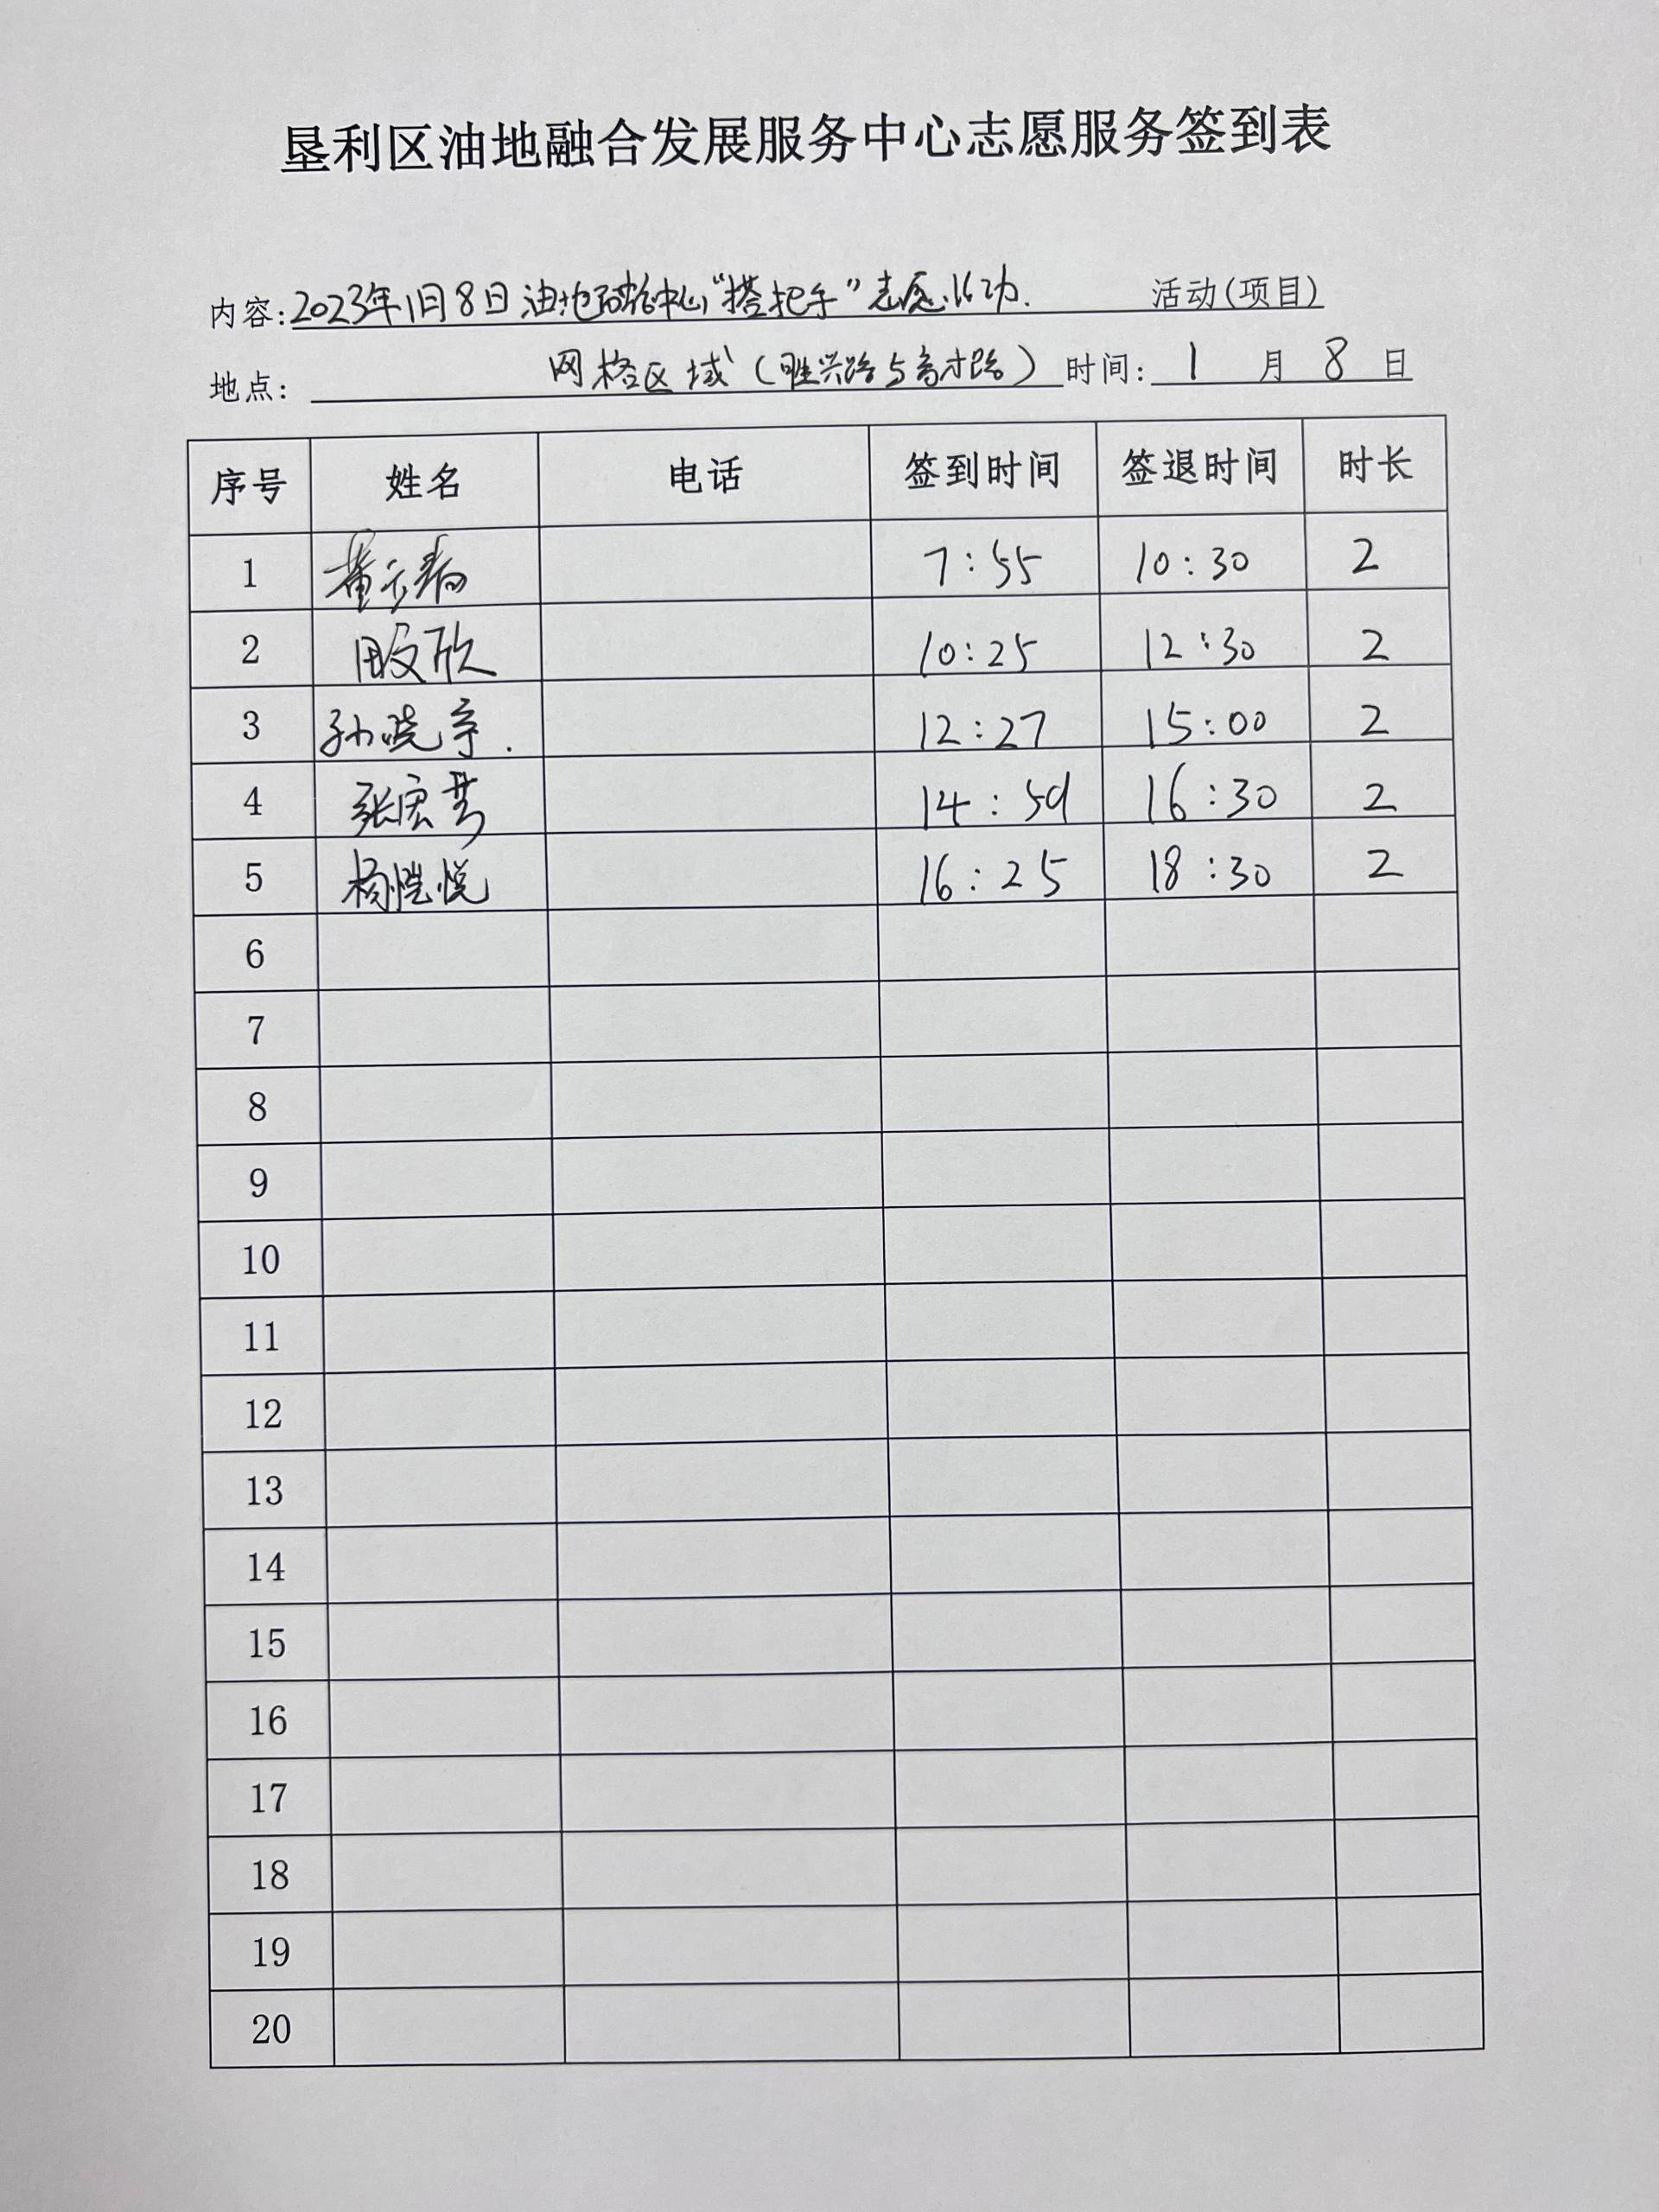 垦利区油地融合发展服务中心志愿服务签到表
内容:2023年1月8日油地融合中心"搭把手"志愿活动. 活动(项目)
地点: 网格区域(胜兴路与育才路) 时间: 1 月 8 日
序号 姓名 电话 签到时间 签退时间 时长
1 董 7:55 10:30 2
2 田文欣 10:25 12:30 2
3 孙晓亭. 12:27 15:00 2
4 张宏 14:59 16:30 2
5 杨恺悦 16:25 18:30 2
6
7
8
9
10
11
12
13
14
15
16
17
18
19
20